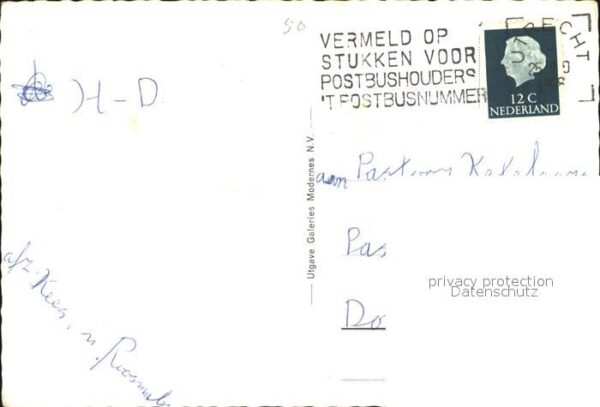 50
VERMELD OP
STUKKEN VOOR
POSTBUSHOUDERS
'T POSTBUSNUMMER
12 C
NEDERLAND
H-D
Utgave Galeries Modernes N.V.
aan Pastoor
Pas
Do
afz. Kees, v.
privacy protection
Datenschutz